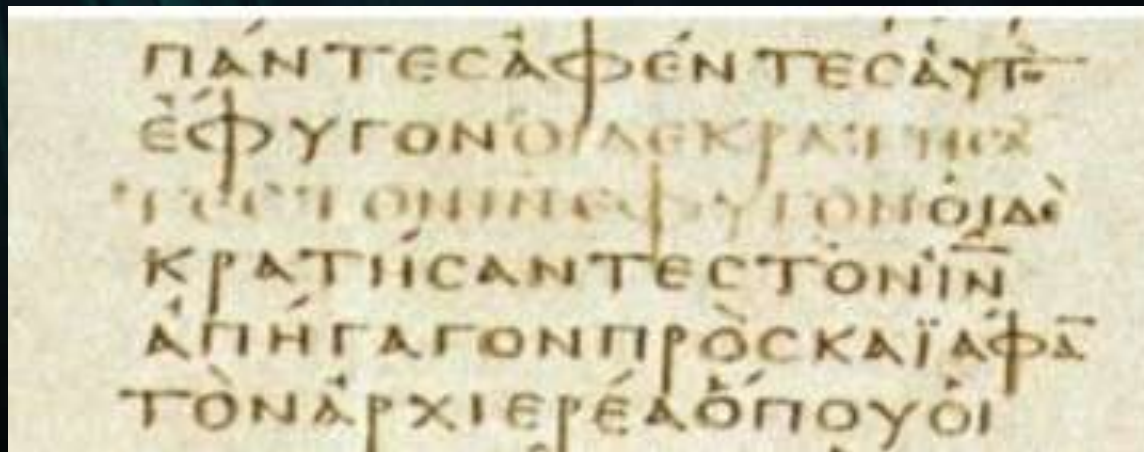 ΠΆΝΤΕCἈΦΈΝΤΕCἀΥΤῸ
ἜΦΥΓΟΝΟΙΔΕΚΡΑΤΗCΑ
ΤΕCΤΟΝΙΝΕΦΥΓΟΝὉΙΔῈ
ΚΡΑΤΉCΑΝΤΕCΤῸΝΙ̅Ν̅
ἈΠΉΓΑΓΟΝΠΡῸCΚΑΪΆΦΑ̅
ΤῸΝἈΡΧΙΕΡΈΑὍΠΟΥΟἹ